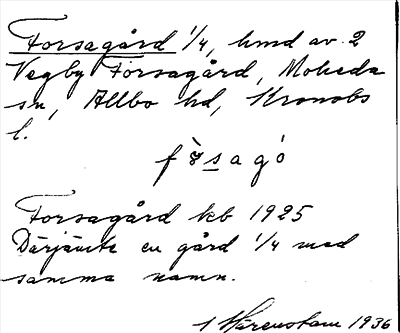 Forsagård 1/4, hmd av 2
Vegby Forsagård, Moheda
sn, Allbo hd, Kronobs
l.
Forsagård kb 1925
Därjämte en gård 1/4 med
samma namn.
1936